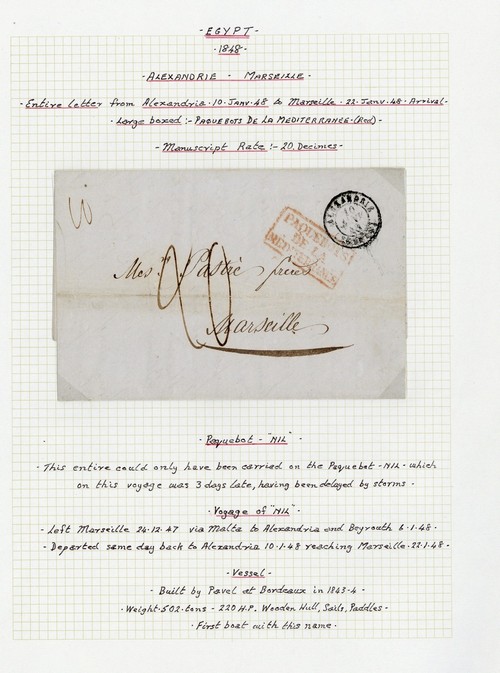 - EGYPT -
- 1848 -
- ALEXANDRIE - MARSEILLE -
- Entire letter from Alexandria · 10 · Janv · 48 to Marseille · 22 · Janv · 48 · Arrival -
- Large boxed :- PAQUEBOTS DE LA MEDITERRANEE · (Red) -
- Manuscript Rate :- 20 Decimes -
ALEXANDRIE
10
PAQUEBOTS
DE LA
MEDITERRANEE
Mess.rs Pastré frères
20
Marseille
· Paquebot - "NIL" -
· This entire could only have been carried on the Paquebot - NIL - which
on this voyage was 3 days late, having been delayed by storms ·
· Voyage of "NIL" ·
- Left Marseille 24·12·47 via Malta to Alexandria and Beyrouth 6·1·48 ·
- Departed same day back to Alexandria 10·1·48 reaching Marseille · 22·1·48 ·
- Vessel -
- Built by Pavel at Bordeaux in 1843-4 ·
· Weight · 502 · tons - 220 H.P. Wooden Hull, Sails, Paddles -
· First boat with this name ·